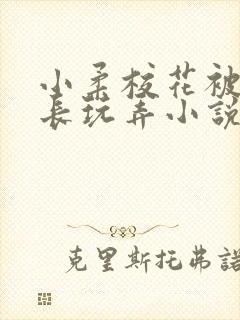 小柔校花被
長玩弄小說
克里斯托弗諾